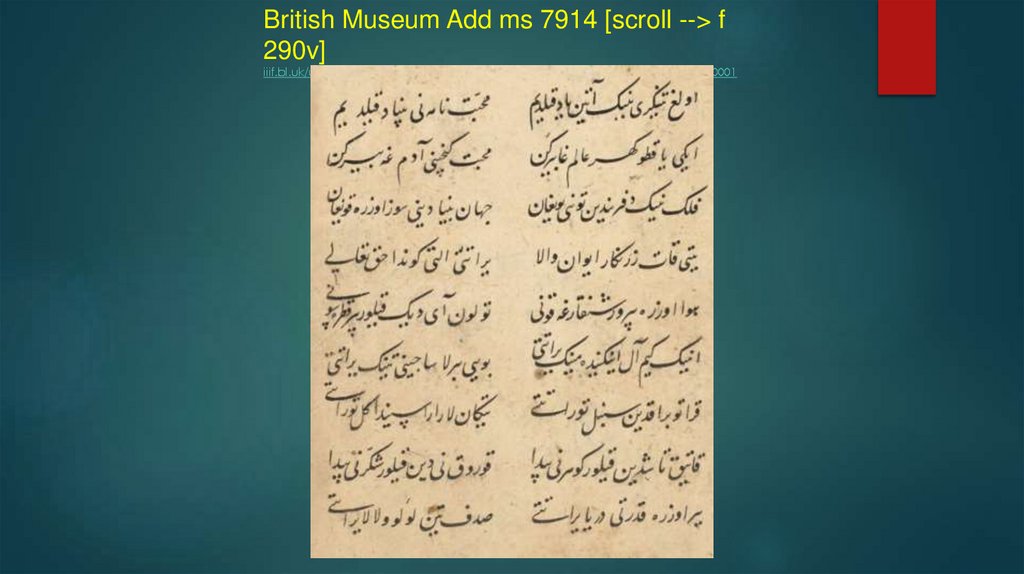 British Museum Add ms 7914 [scroll --> f
290v]
iiif.bl.uk/
0001
اولغ تنکری ننیک آتین یاد قیلدیم محبّت نامه نی بنیاد قیلدیم
ایکی یاقطو کهر عالم غا بیرکن محبت کنجینی آدم غه بیرکن
فلک ننیک دفترندین تونی یویغان جهان بنیادینی سوز اوزره قویغان
یتی قات زرنکار ایوان والا یراتتی التی کوندا حق تعالی
هوا اوزره بیرور شنقارغه قونی تولون آی دیک قیلور بیر قطره سونی
انینک کیم آل اینکینده مینک یراتتی بویی بیرلا ساجینی تینک یراتتی
قرا توبراقدین سنبل توراتتی تیکان لار اراسیندا کل توراتتی
قاتیق تاشدین قیلور کوهرنی پیدا قوروق نی دین قیلور شکّرنی پیدا
بیر اوزره قدرتی دریا یراتتی صدف تین لولو ولالا یراتتی